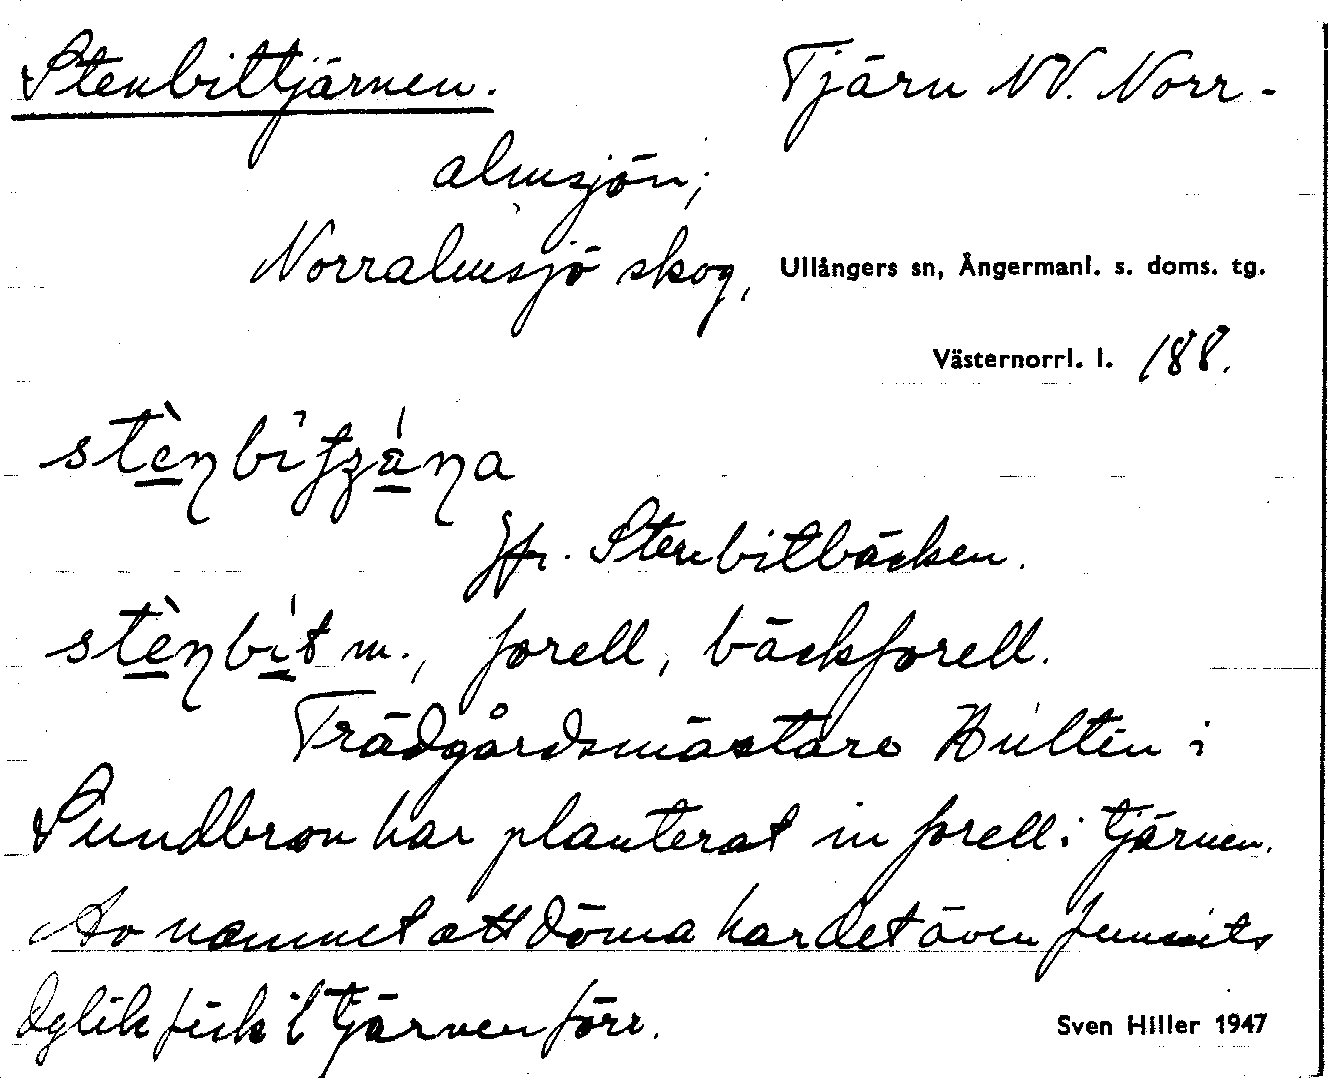 Stenbittjärnen. Tjärn NV. Norr-
almsjön;
Norralmsjö skog, Ullångers sn, Ångermanl. s. doms. tg.
Västernorrl. l. 188.
Jfr. Stenbitbäcken.
m., forell, bäckforell.
Trädgårdsmästare Hultin i
Sundbron har planterat in forell i tjärnen.
Av namnet att döma har det även funnits
dylik fisk i tjärnen förr.
Sven Hiller 1947